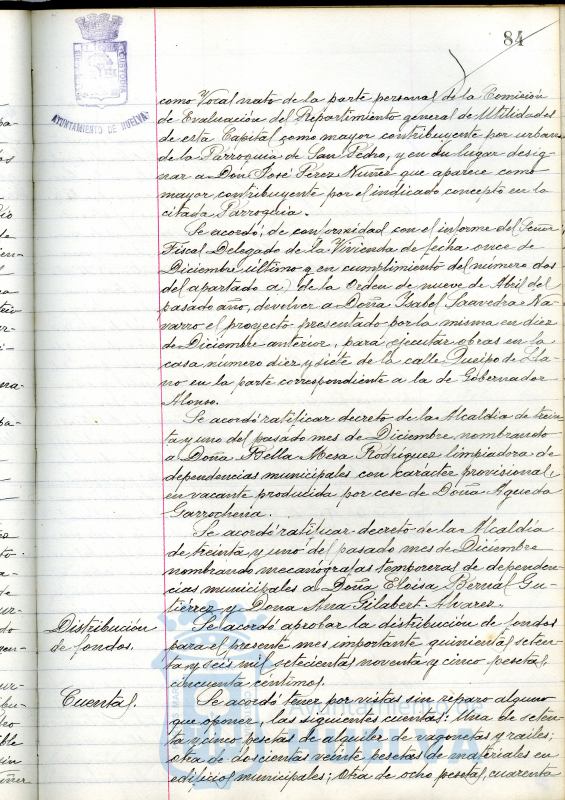 84
AYUNTAMIENTO DE HUELVA
como Vocal nato de la parte personal de la Comisión
de Evaluación del Repartimiento general de Utilidades
de esta Capital como mayor contribuyente por urbana
de la Parroquia de San Pedro, y en su lugar desig-
nar a Don José Perez Nuñez que aparece como
mayor contribuyente por el indicado concepto en la
citada Parroquia.
Se acordó, de conformidad con el informe del Señor
Fiscal Delegado de la Vivienda de fecha once de
Diciembre último y en cumplimiento del número dos
del apartado a) de la Orden de nueve de Abril del
pasado año, devolver a Doña Isabel Saavedra Na-
varro el proyecto presentado por la misma en diez
de Diciembre anterior, para ejecutar obras en la
casa número diez y siete de la calle Queipo de Lla-
no en la parte correspondiente a la de Gobernador
Alonso.
Se acordó ratificar decreto de la Alcaldía de trein-
ta y uno del pasado mes de Diciembre nombrando
a Doña Bella Mesa Rodriguez limpiadora de
dependencias municipales con carácter provisional,
en vacante producida por cese de Doña Agueda
Garrochena.
Se acordó ratificar decreto de la Alcaldía
de treinta y uno del pasado mes de Diciembre
nombrando mecanógrafas temporeras de dependen-
cias municipales a Doña Eloisa Bernal Gu-
tiérrez y Dona Ana Gilabert Alvarez.
Distribución
de fondos.
Se acordó aprobar la distribución de fondos
para el presente mes importante quinientas seten-
ta y seis mil setecientas noventa y cinco pesetas,
cincuenta céntimos.
Cuentas.
Se acordó tener por vistas sin reparo alguno
que oponer, las siguientes cuentas: Una de seten-
ta y cinco pesetas de alquiler de vagonetas y railes;
otra de doscientas veinte pesetas de materiales en
edificios municipales; otra de ocho pesetas, cuarenta